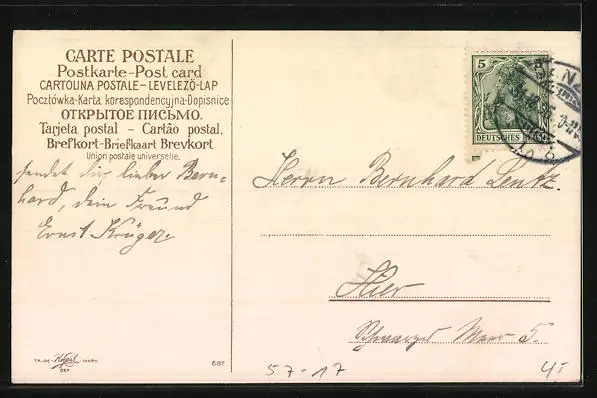 CARTE POSTALE
Postkarte-Post card
CARTOLINA POSTALE-LEVELEZÖ-LAP
Pocztówka-Karta korespondencyjna-Dopisnice
ОТКРЫТОЕ ПИСЬМО.
Tarjeta postal - Cartão postal.
Brefkort-Briefkaart Brevkort
Union postale universelle.
sendet dir, lieber Bern-
hard, dein Freund
Ernst Krüger
5
DEUTSCHES REICH
Herrn Bernhard Lentz.
Hier
5.
TR.DE- -MARK.
DEP.
687
57-17